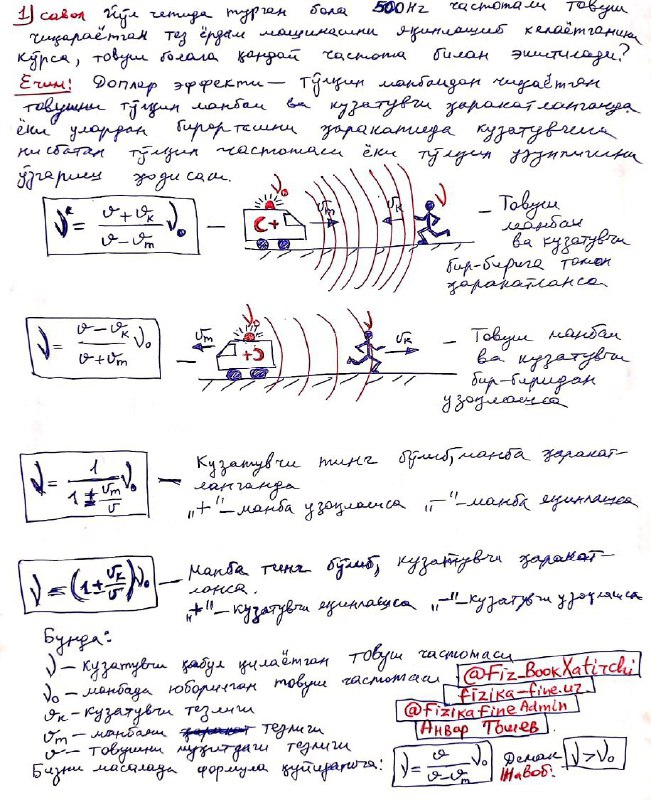 1) савол Йўл четида турган бола 500 Нг частотали товуш
чиқараётган тез ёрдам машинасини яқинлашиб келаётганини
кўрса, товуш болага қандай частота билан эшитилади?
Ечим: Доплар эффекти — тўлқин манбаидан чиқаётган
товушни тўлқин манбаи ва кузатувчи ҳаракатланганда
ёки улардан бирортасини ҳаракатида кузатувчига
нисбатан тўлқин частотаси ёки тўлқин узунлигини
ўзгариш ҳодисаси.
ν = (v + vк)/(v − vm) ν₀ —
ν₀
vm
vк
ν
— Товуш
манбаи
ва кузатувчи
бир-бирига томон
ҳаракатланса
ν = (v − vк)/(v + vm) ν₀ —
vm
ν₀
ν
vк
— Товуш манбаи
ва кузатувчи
бир-биридан
узоқлашса
ν = 1/(1 ± vm/v) ν₀ — Кузатувчи тинг бўлиб, манба ҳаракат-
ланганда
„+"— манба узоқлашса „—"— манба яқинлашса
ν = (1 ± vк/v) ν₀ — манба тинг бўлиб, кузатувчи ҳаракат-
ланса.
„+"— кузатувчи яқинлашса „—"— кузатувчи узоқлашса
Бунда:
ν — кузатувчи қабул қилаётган товуш частотаси
ν₀ — манбада юборилган товуш частотаси
vк - кузатувчи тезлиги
vm — манбаи тезлиги
v — товушни муҳитдаги тезлиги
@Fiz_BookXatirchi
fizika-fine.uz
@fizikafineAdmin
Анвар Тошев.
Бизни масалада формула қуйидагича: ν = v/(v − vm) ν₀ Демак ν > ν₀
Жавоб: